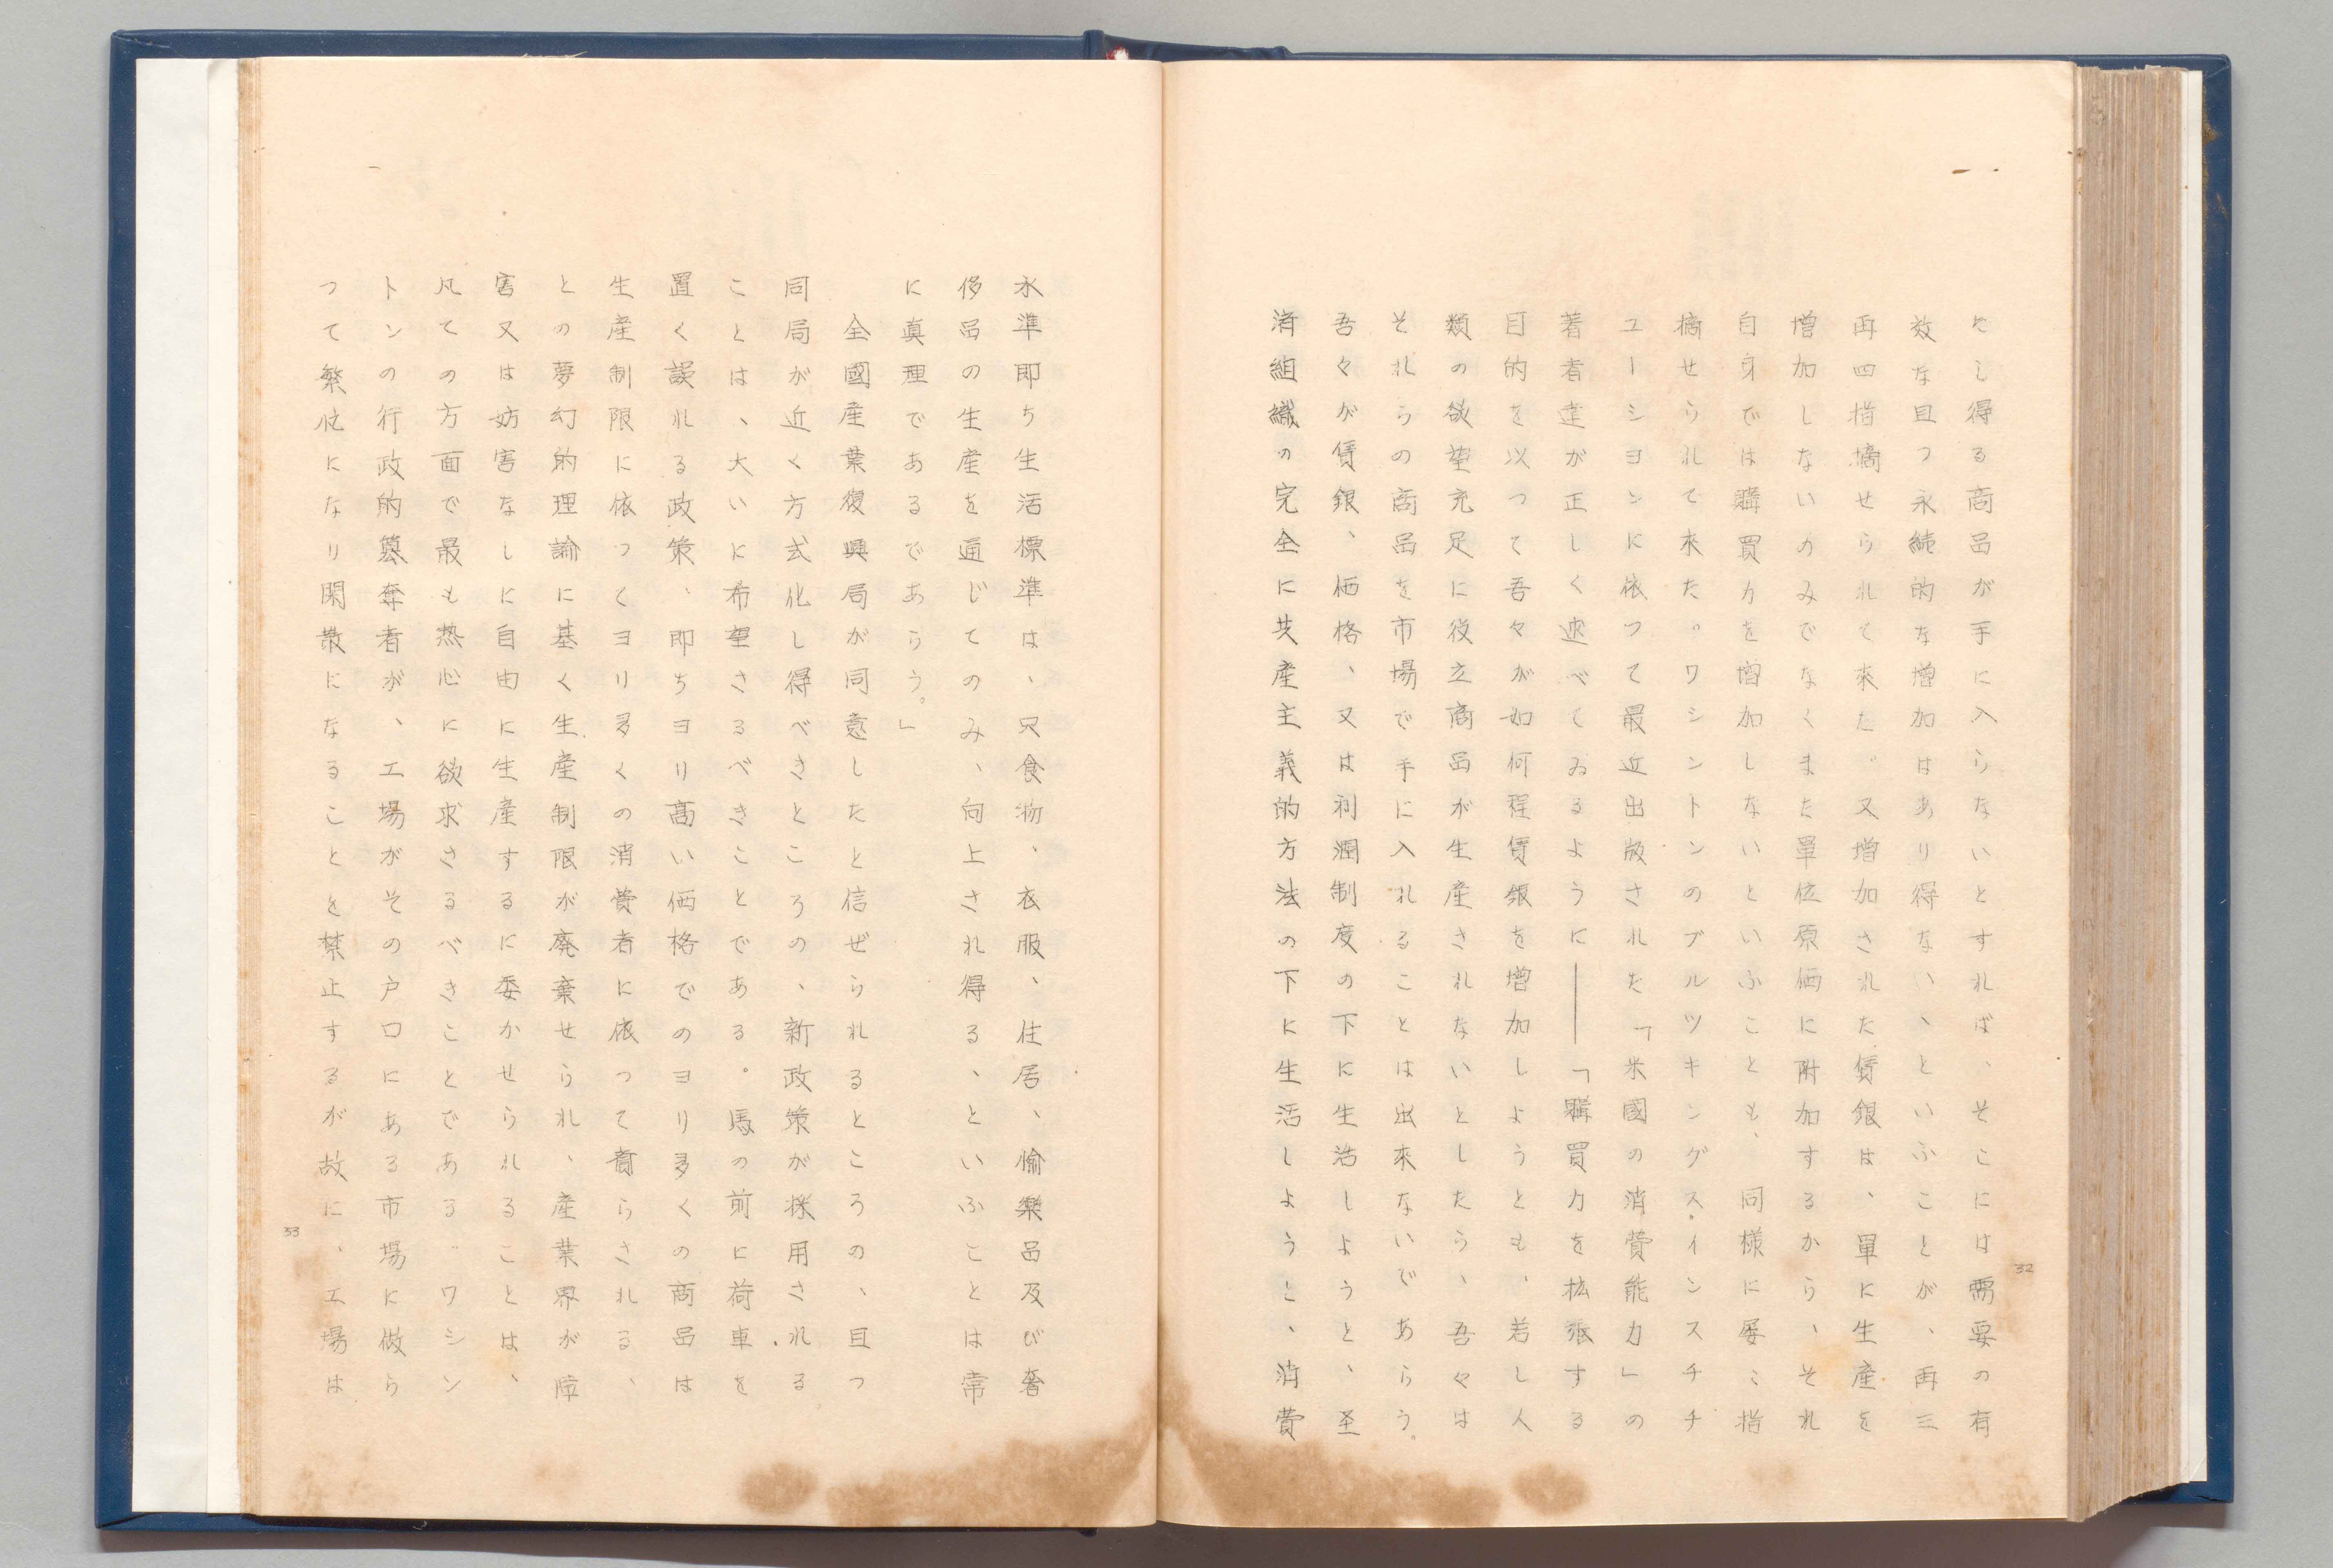 とし得る商品が手に入らないとすれば　そこには需要の有
效な且つ永続的な増加はあり得ない、といふことが、再三
再四指摘せられて来た。又増加された賃銀は、單に生産を
増加しないのみでなくまた單位原価に附加するから、それ
自身では購買力を増加しないといふことも、同様に屡〻指
摘せられて来た。ワシントンのブルツキングス・インスチチ
ユーシヨンに依つて最近出版された「米國の消費能力」の
著者達が正しく述べてゐるように──「購買力を拡張する
目的を以つて吾々が如何程賃銀を増加しようとも、若し人
類の欲望充足に役立商品が生産されないとしたら、吾々は
それらの商品を市場で手に入れることは出來ないであらう。
吾々が賃銀、価格、又は利潤制度の下に生活しようと、至
消組織の完全に共産主義的方法の下に生活しようと、消費
32
水準即ち生活標準は、只食物、衣服、住居、愉樂品及び奢
侈品の生産を通じてのみ、向上され得る、といふことは常
に真理であるであらう。」
全國産業復興局が同意したと信ぜられるところの、且つ
同局が近く方式化し得べきところの、新政策が採用される
ことは、大いに希望さるべきことである。馬の前に荷車を
置く誤れる政策、即ちヨリ高い価格でのヨリ多くの商品は
生産制限に依つてヨリ多くの消費者に依つて齎らされる、
との夢幻的理論に基く生産制限が廃棄せられ、産業界が障
害又は妨害なしに自由に生産するに委かせられることは、
凡ての方面で最も熱心に欲求さるべきことである。ワシン
トンの行政的簒奪者が、工場がその戸口にある市場に做ら
つて繁忙になり閑散になることを禁止するが故に、工場は
33